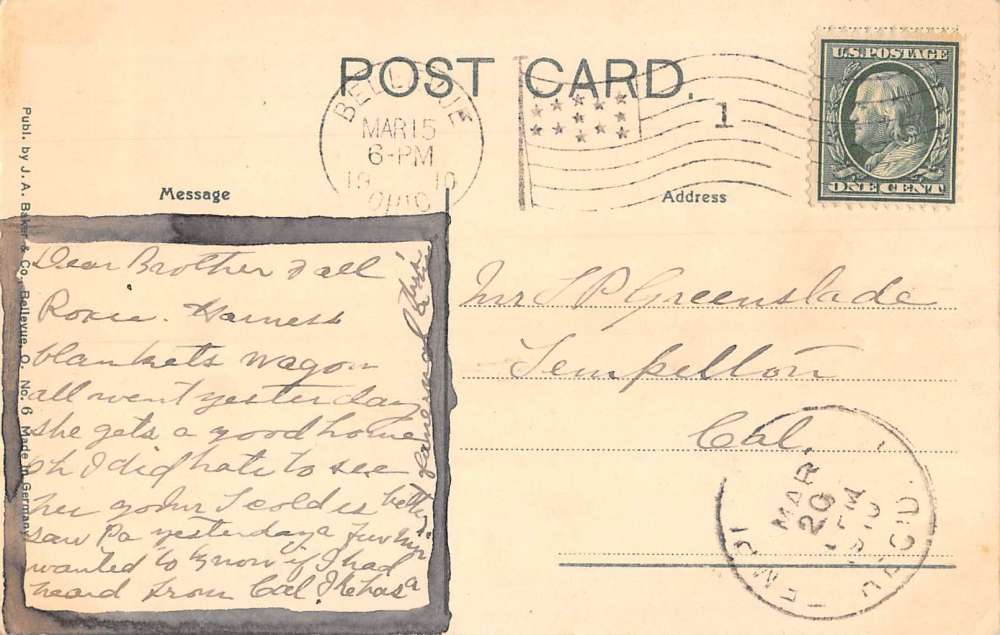 POST CARD.
U.S. POSTAGE
ONE CENT
BELLEVUE
MAR 15
6-PM
1910
OHIO
1
Message
Address
Publ. by J. A. Baker & Co., Bellevue, O. No. 6 Made in Germany
Dear Brother & all
Roxie. Harness
blankets wagon
all went yesterday
she gets a good home
oh I did hate to see
her go Mr cold is better
saw Pa yesterday a few
wanted to know if I had
heard from Cal Ike has a
Mr P Greenslade
Templeton
Cal.
MAR
20
1910
REC'D.